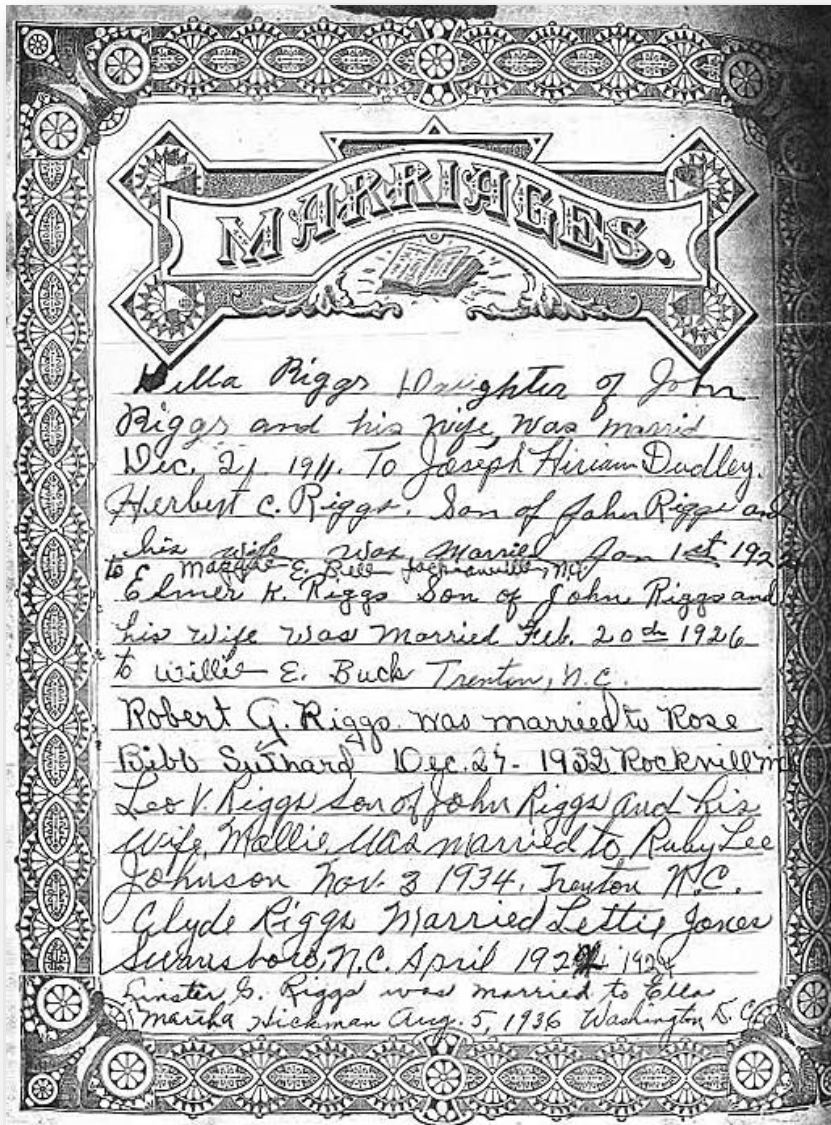 MARRIAGES.
Della Riggs Daughter of John
Riggs and his wife, was marrid
Dec. 21. 1911. To Joseph Hiriam Dudley.
Herbert C. Riggs. Son of John Riggs and
his wife was Married Jan 1st 192
to Maggie E. Bell Jacksonville, N.C.
Elmer K. Riggs Son of John Riggs and
his wife was Married Feb. 20th 1926
to Willie E. Buck Trenton, N.C.
Robert G. Riggs was married to Rose
Bibb Suthard Dec. 27 - 1932 Rockvill
Leo V. Riggs son of John Riggs and his
wife, Mallie, was married to Ruby Lee
Johnson Nov. 3 1934. Trenton N.C.
Clyde Riggs Married Lettie Jones
Swansboro, N.C. April 192 1924
Linster G. Riggs was married to Ella
Martha Hickman Aug. 5, 1936 Washington D.C.